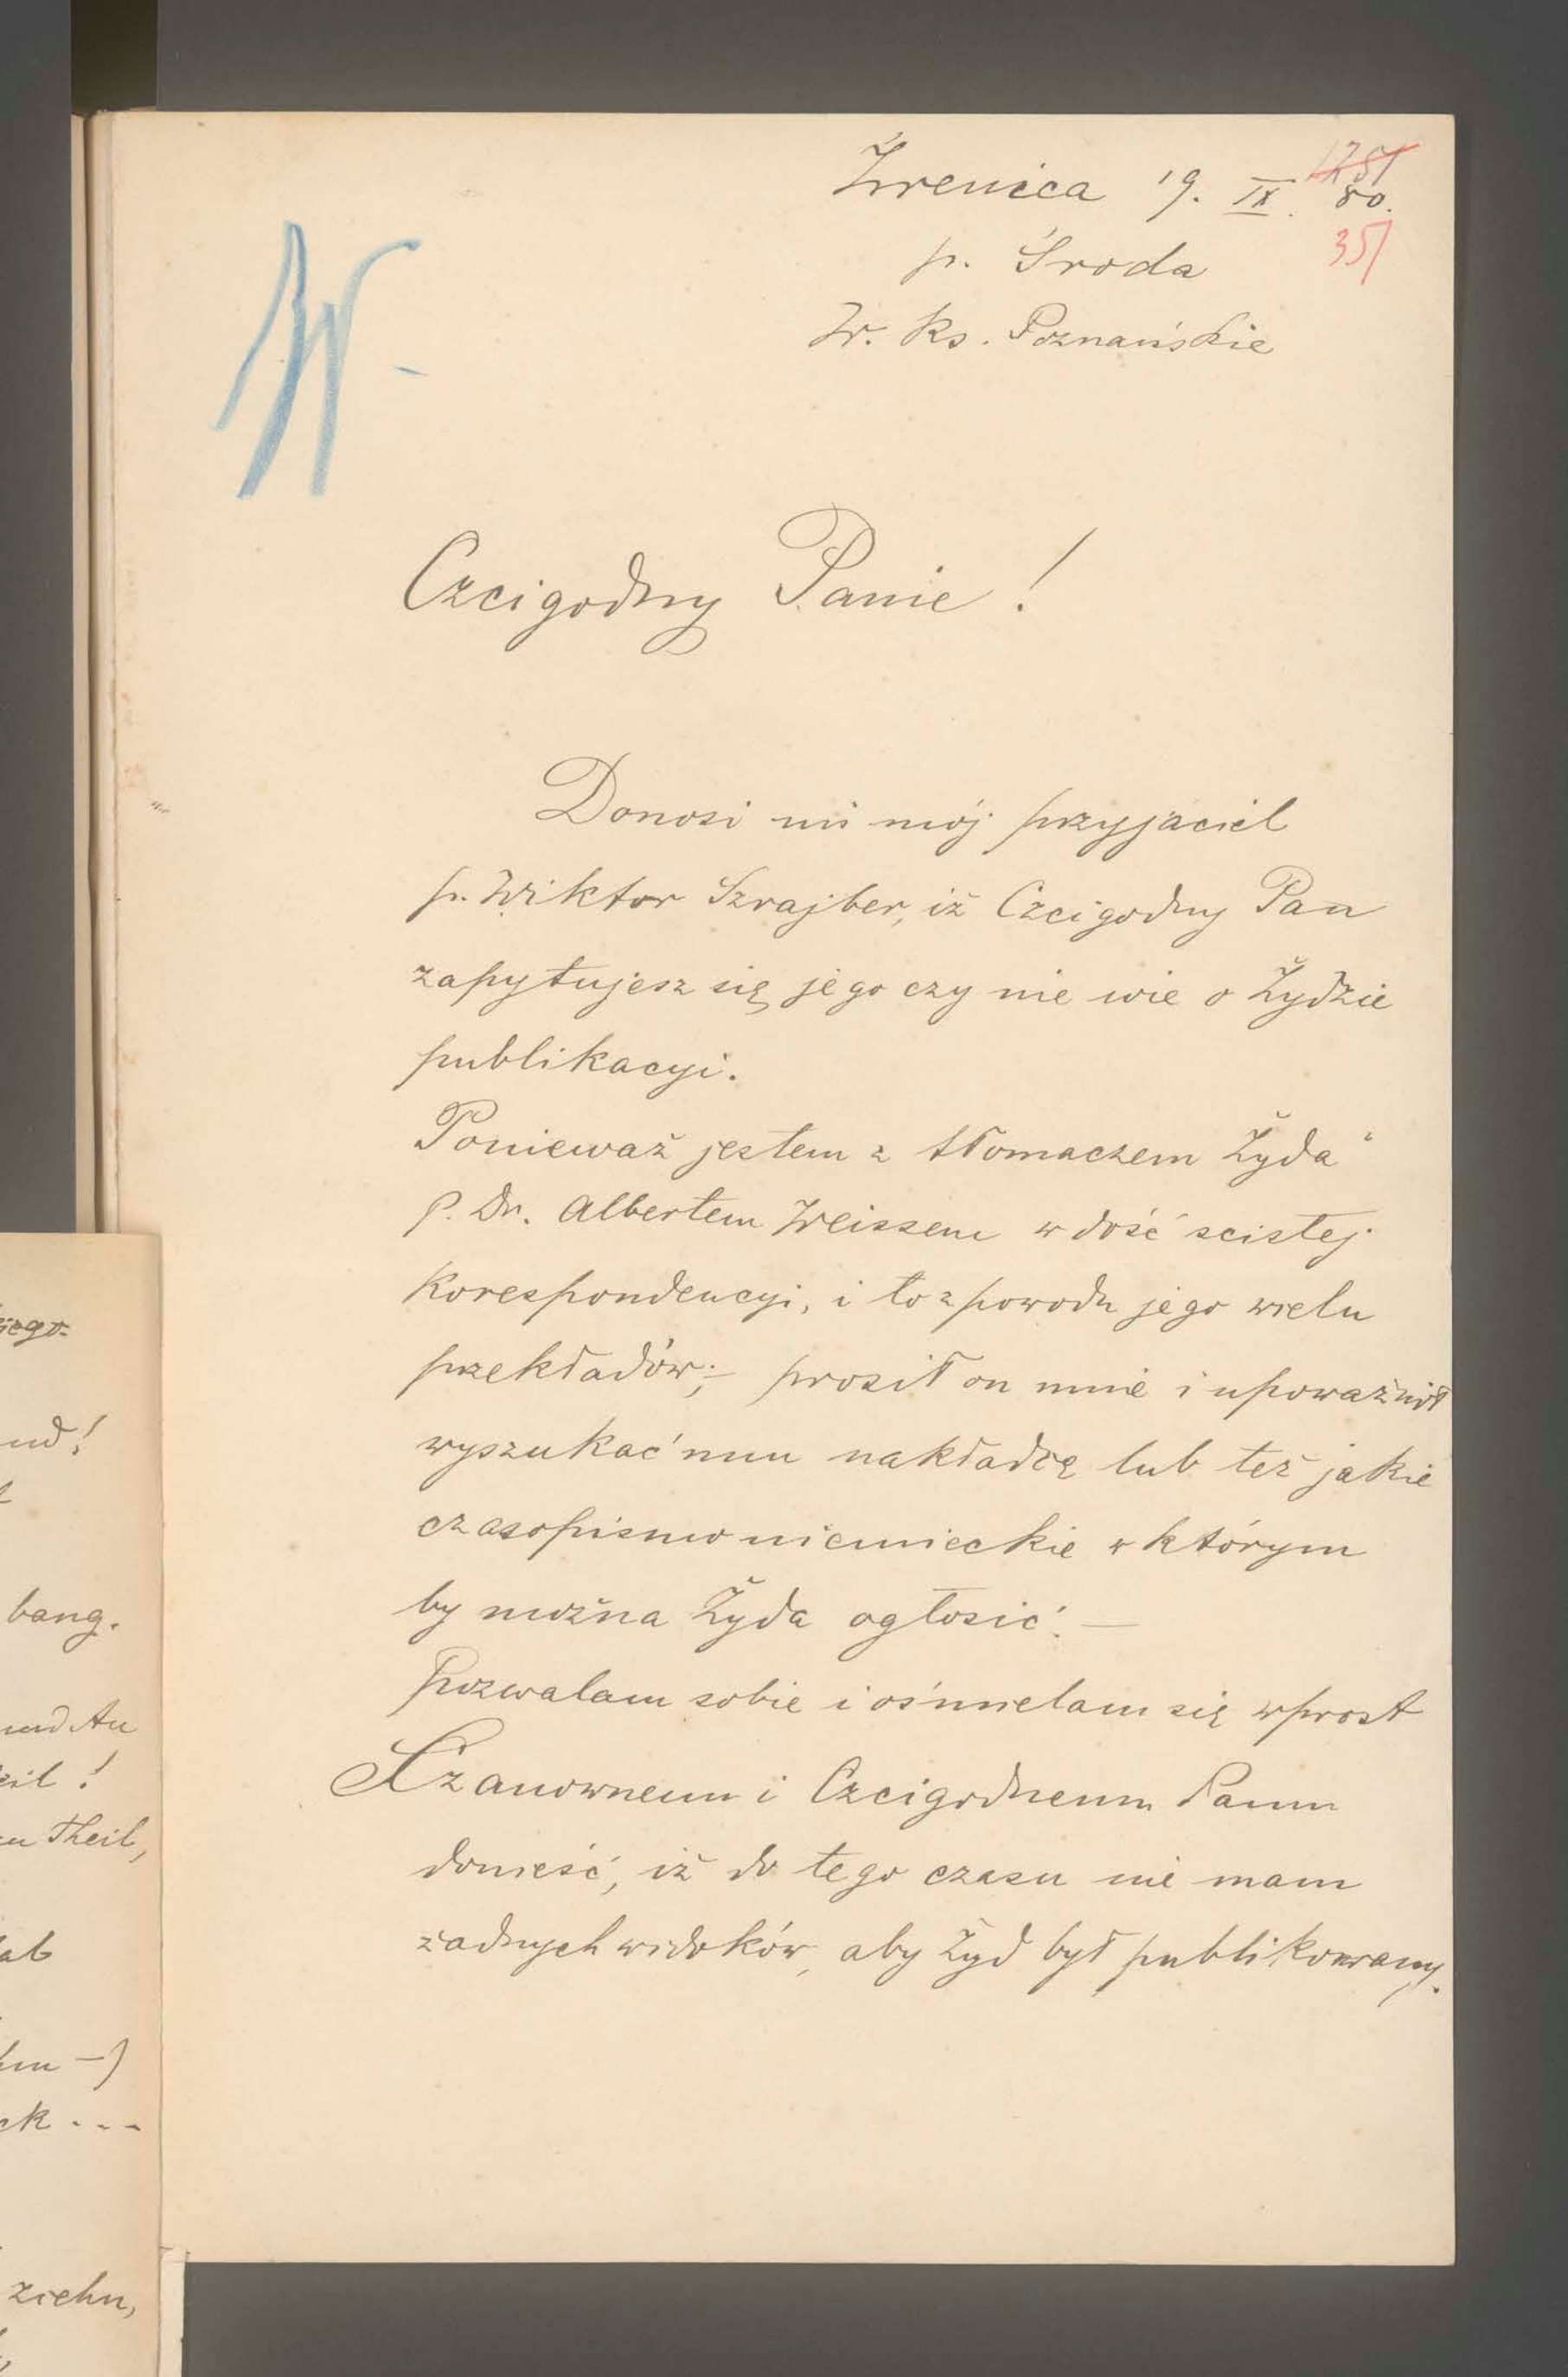 Żrenica 19. IX. 80.
1251
351
p. Środa
W. Ks. Poznańskie
W -
Czcigodny Panie!
Donosi mi mój przyjaciel
p. Wiktor Szrajber, iż Czcigodny Pan
zapytujesz się jego czy nie wie o Żydzie
publikacyi.
Ponieważ jestem z tłomaczem Żyda"
p. Dr. Albertem Weissem w dość scisłej
korespondencyi, i to z powodu jego wielu
przekładów; – prosił on mnie i upoważnił
wyszukać mu nakładcę lub też jakie
czasopismo niemieckie w którym
by można Żyda ogłosić. –
Pozwalam sobie i ośmielam się wprost
Szanownemu i Czcigodnemu Panu
donieść, iż do tego czasu nie mam
żadnych widoków, aby Żyd był publikowany.
iego.
und!
bang.
und An
eil!
Theil,
ab
hm –)
ck ---
ziehn,